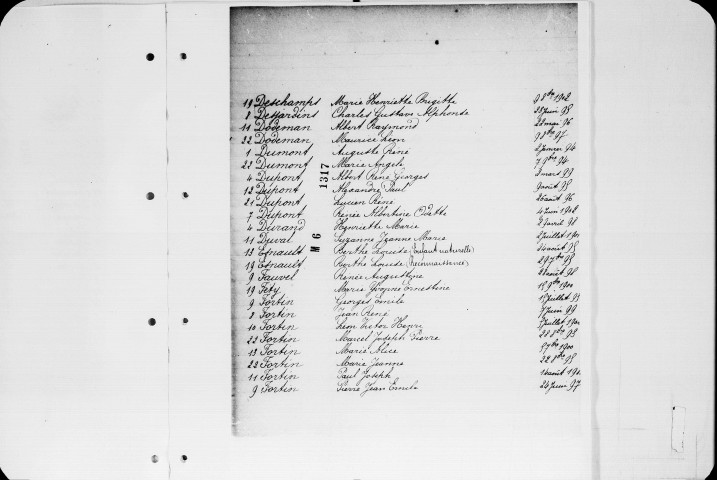 19 Deschamps Marie Henriette Brigitte 9 8bre 1902
8 Desjardins Charles Gustave Alphonse 25 Juin 95
11 Dodeman Albert Raymond 22 mai 96
22 Dodeman Maurice Léon 9 8bre 97
1 Dumont Auguste René 2 Janvier 94
22 Dumont Marie Angèle 7 9bre 94
4 Dupont Albert René Georges 2 mars 99
12 Dupont Alexandre Paul 9 août 95
21 Dupont Lucien René 26 août 96
7 Dupont Renée Albertine Odette 4 Juin 1902
4 Durand Henriette Marie 2 avril 98
11 Duval Suzanne Jeanne Marie 2 Juillet 1901
13 Esnault Berthe Louise (Enfant naturelle) 14 août 95
18 Esnault Berthe Louise (Reconnaissance) 29 7bre 95
9 Fauvel Renée Augustine août 98
19 Fety Marie Yvonne Ernestine 15 9bre 1900
9 Fortin Georges Emile 15 Juillet 93
8 Fortin Jean René 7 Juin 99
10 Fortin Léon Victor Henri 7 Juillet 1901
22 Fortin Marcel Joseph Pierre 22 8bre 93
13 Fortin Marie Alice 1900
23 Fortin Marie Jeanne 22 8bre 95
11 Fortin Paul Joseph 14 août 190
9 Fortin Pierre Jean Emile 26 Juin 97
M 6 1317